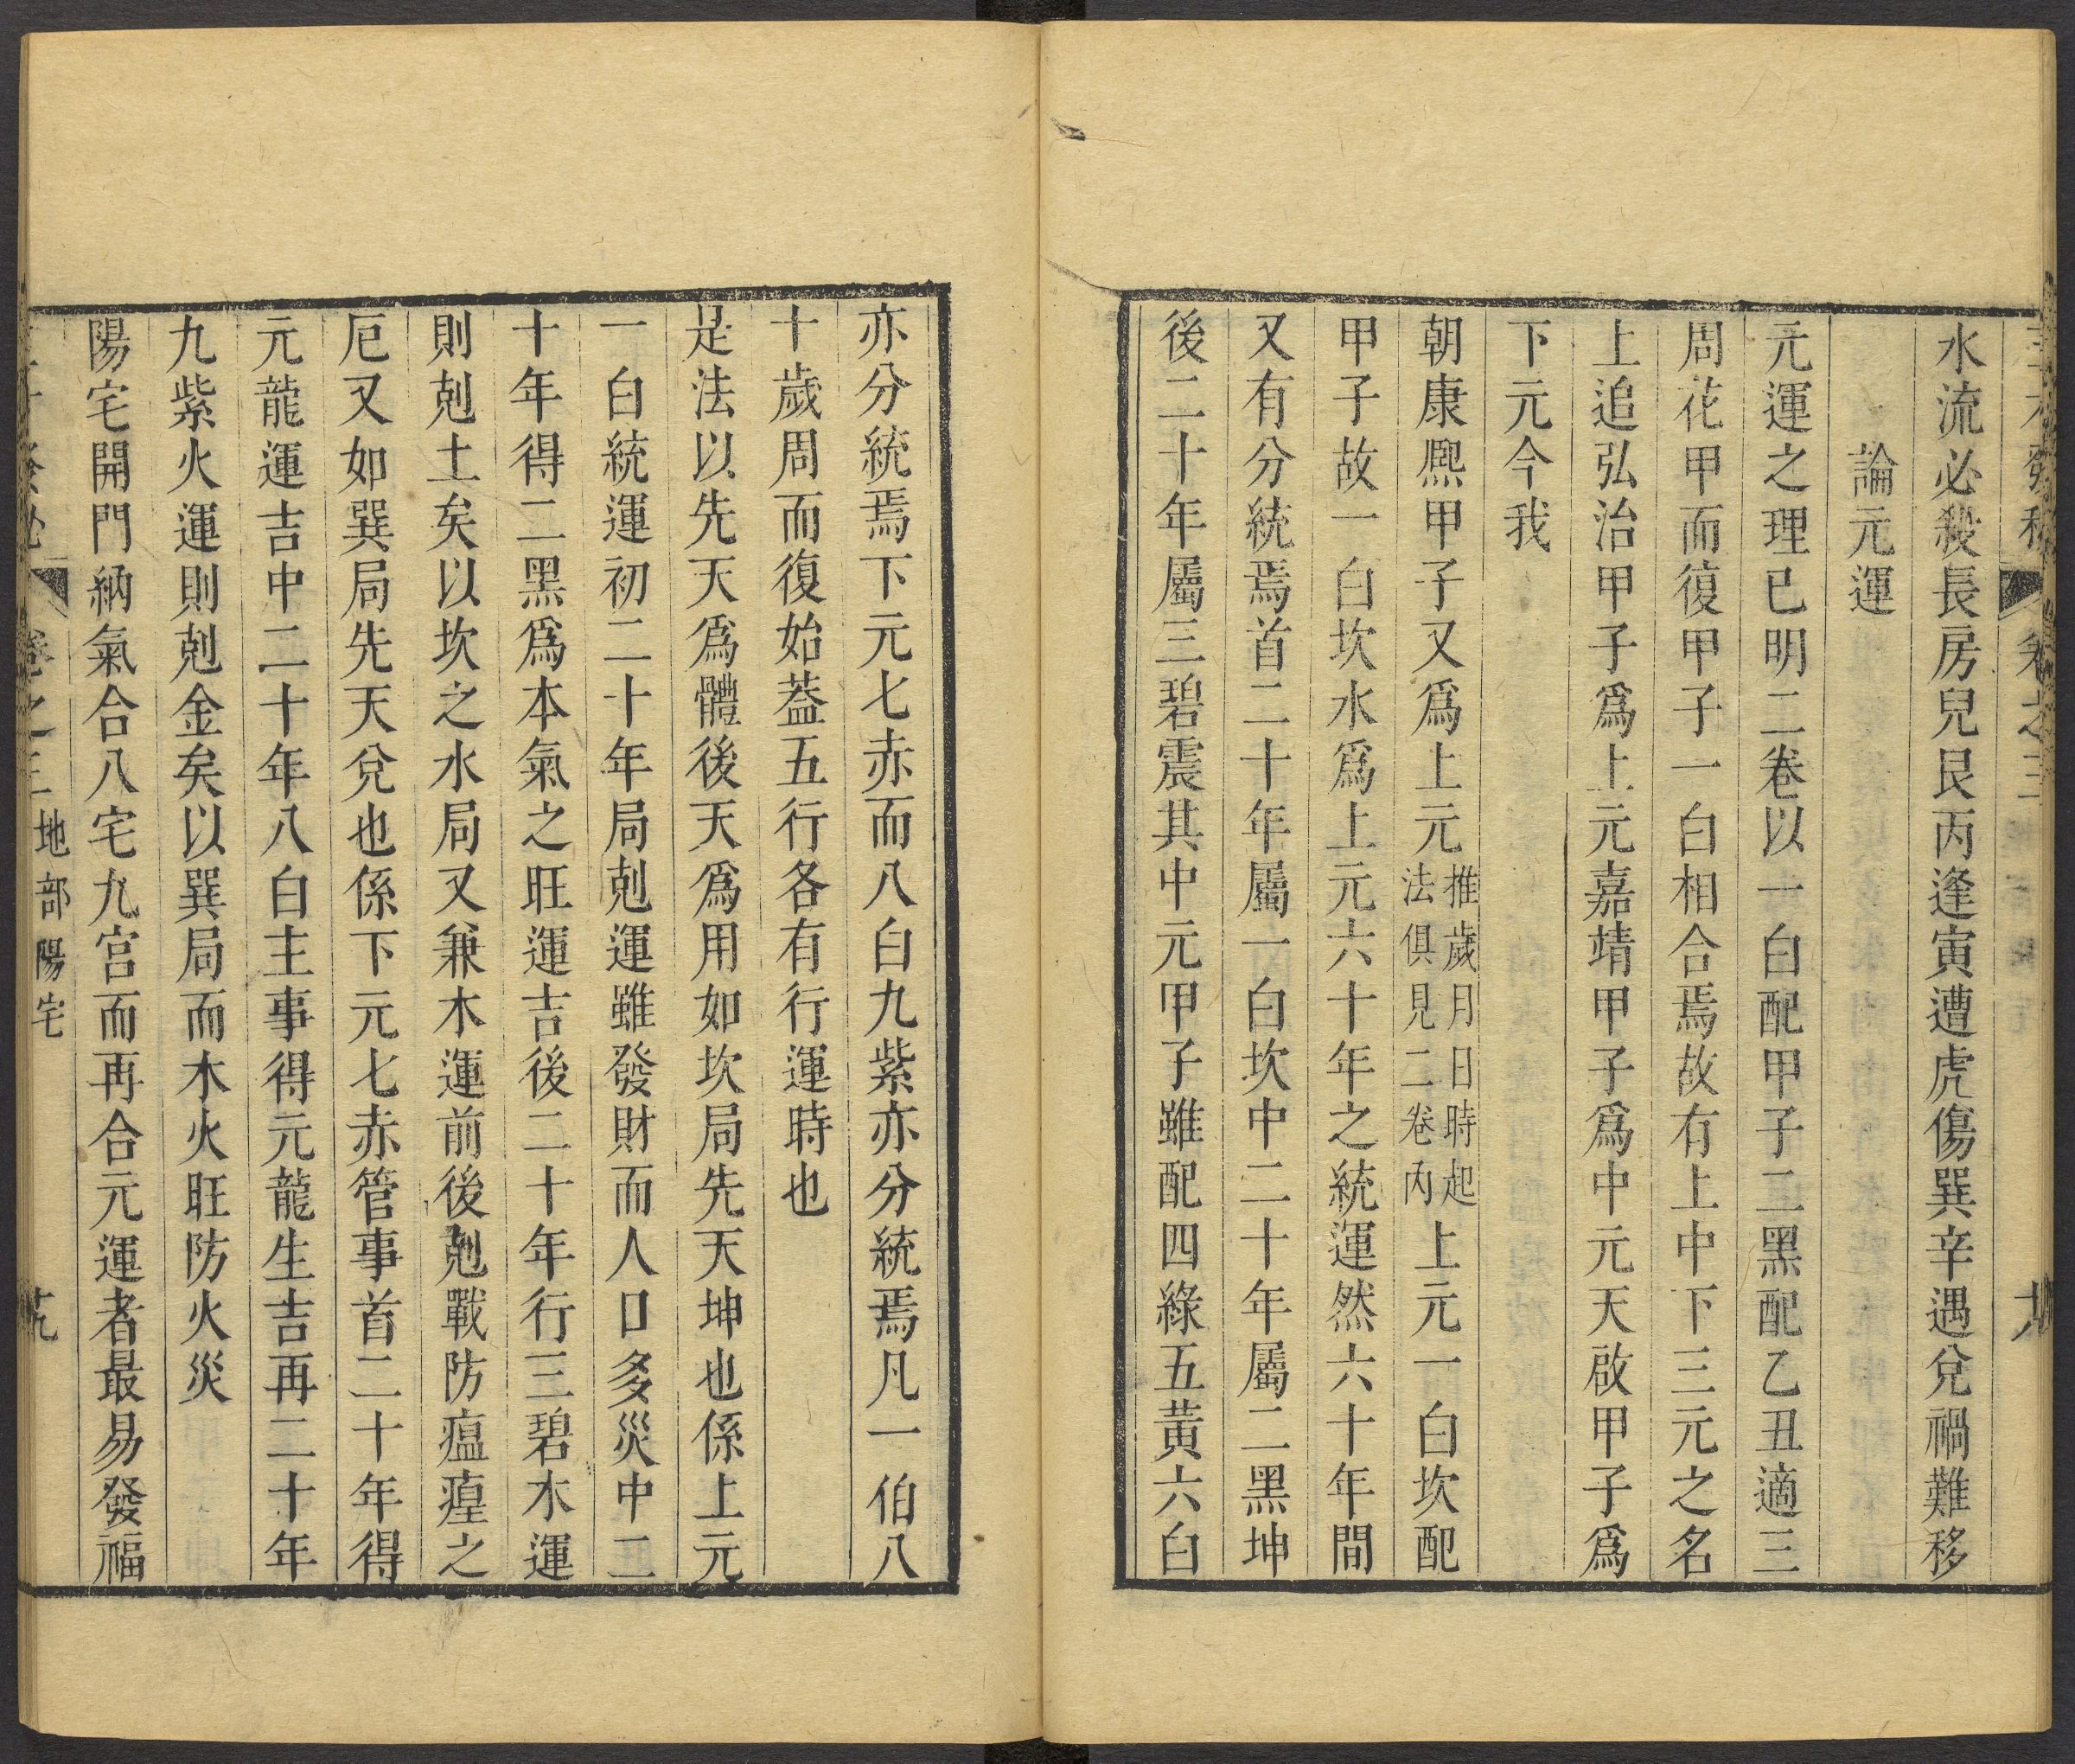 水流必殺長房兒艮丙逢寅遭虎傷巽辛遇兌禍難移
論元運
元運之理已明二卷以一白配甲子二黑配乙丑適三
周花甲而復甲子一白相合焉故有上中下三元之名
上追弘治甲子爲上元嘉靖甲子爲中元天啟甲子爲
下元今我
朝康熈甲子又爲上元推歲月日時起法俱見二卷內上元一白坎配
甲子故一白坎水爲上元六十年之統運然六十年間
又有分統焉首二十年屬一白坎中二十年屬二黑坤
後二十年屬三碧震其中元甲子雖配四綠五黃六白
亦分統焉下元七赤而八白九紫亦分統焉凡一伯八
十歲周而復始葢五行各有行運時也
是法以先天爲體後天爲用如坎局先天坤也係上元
一白統運初二十年局剋運雖發財而人口多災中二
十年得二黑爲本氣之旺運吉後二十年行三碧木運
則剋土矣以坎之水局又兼木運前後剋戰防瘟瘟之
厄又如巽局先天兌也係下元七赤管事首二十年得
元龍運吉中二十年八白主事得元龍生吉再二十年
九紫火運則剋金矣以巽局而木火旺防火災
陽宅開門納氣合八宅九宮而再合元運者最易發福
卷之三 地部陽宅